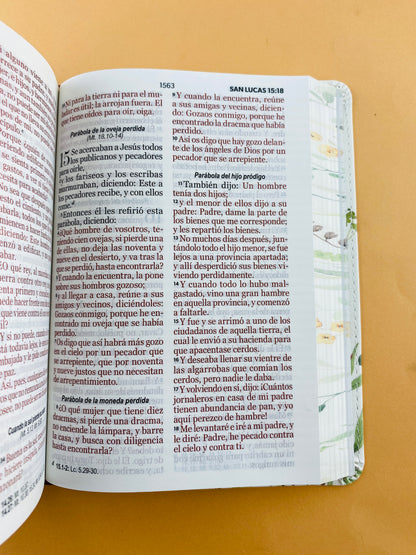 1563 SAN LUCAS 15:18
³⁵Ni para la tierra ni para el mu-
ladar es útil; la arrojan fuera. El
que tiene oídos para oír, oiga.
Parábola de la oveja perdida
(Mt. 18.10-14)
15 Se acercaban a Jesús todos
los publicanos y pecadores
para oírle,
²y los fariseos y los escribas
murmuraban, diciendo: Este a
los pecadores recibe, y con ellos
come.ᵃ
³Entonces él les refirió esta
parábola, diciendo:
⁴¿Qué hombre de vosotros, te-
niendo cien ovejas, si pierde una
de ellas, no deja las noventa y
nueve en el desierto, y va tras la
que se perdió, hasta encontrarla?
⁵Y cuando la encuentra, la pone
sobre sus hombros gozoso;
⁶y al llegar a casa, reúne a sus
amigos y vecinos, diciéndoles:
Gozaos conmigo, porque he en-
contrado mi oveja que se había
perdido.
⁷Os digo que así habrá más gozo
en el cielo por un pecador que
se arrepiente, que por noventa
y nueve justos que no necesitan
de arrepentimiento.
Parábola de la moneda perdida
⁸¿O qué mujer que tiene diez
dracmas, si pierde una dracma,
no enciende la lámpara, y barre
la casa, y busca con diligencia
hasta encontrarla?
ᵃ 15.1-2: Lc. 5.29-30.
⁹Y cuando la encuentra, reúne
a sus amigas y vecinas, diciendo:
Gozaos conmigo, porque he
encontrado la dracma que había
perdido.
¹⁰Así os digo que hay gozo delan-
te de los ángeles de Dios por un
pecador que se arrepiente.
Parábola del hijo pródigo
¹¹También dijo: Un hombre
tenía dos hijos;
¹²y el menor de ellos dijo a su
padre: Padre, dame la parte de
los bienes que me corresponde;
y les repartió los bienes.
¹³No muchos días después, jun-
tándolo todo el hijo menor, se fue
lejos a una provincia apartada;
y allí desperdició sus bienes vi-
viendo perdidamente.
¹⁴Y cuando todo lo hubo mal-
gastado, vino una gran hambre
en aquella provincia, y comenzó
a faltarle.
¹⁵Y fue y se arrimó a uno de los
ciudadanos de aquella tierra, el
cual le envió a su hacienda para
que apacentase cerdos.
¹⁶Y deseaba llenar su vientre de
las algarrobas que comían los
cerdos, pero nadie le daba.
¹⁷Y volviendo en sí, dijo: ¡Cuántos
jornaleros en casa de mi padre
tienen abundancia de pan, y yo
aquí perezco de hambre!
¹⁸Me levantaré e iré a mi padre, y
le diré: Padre, he pecado contra
el cielo y contra ti.